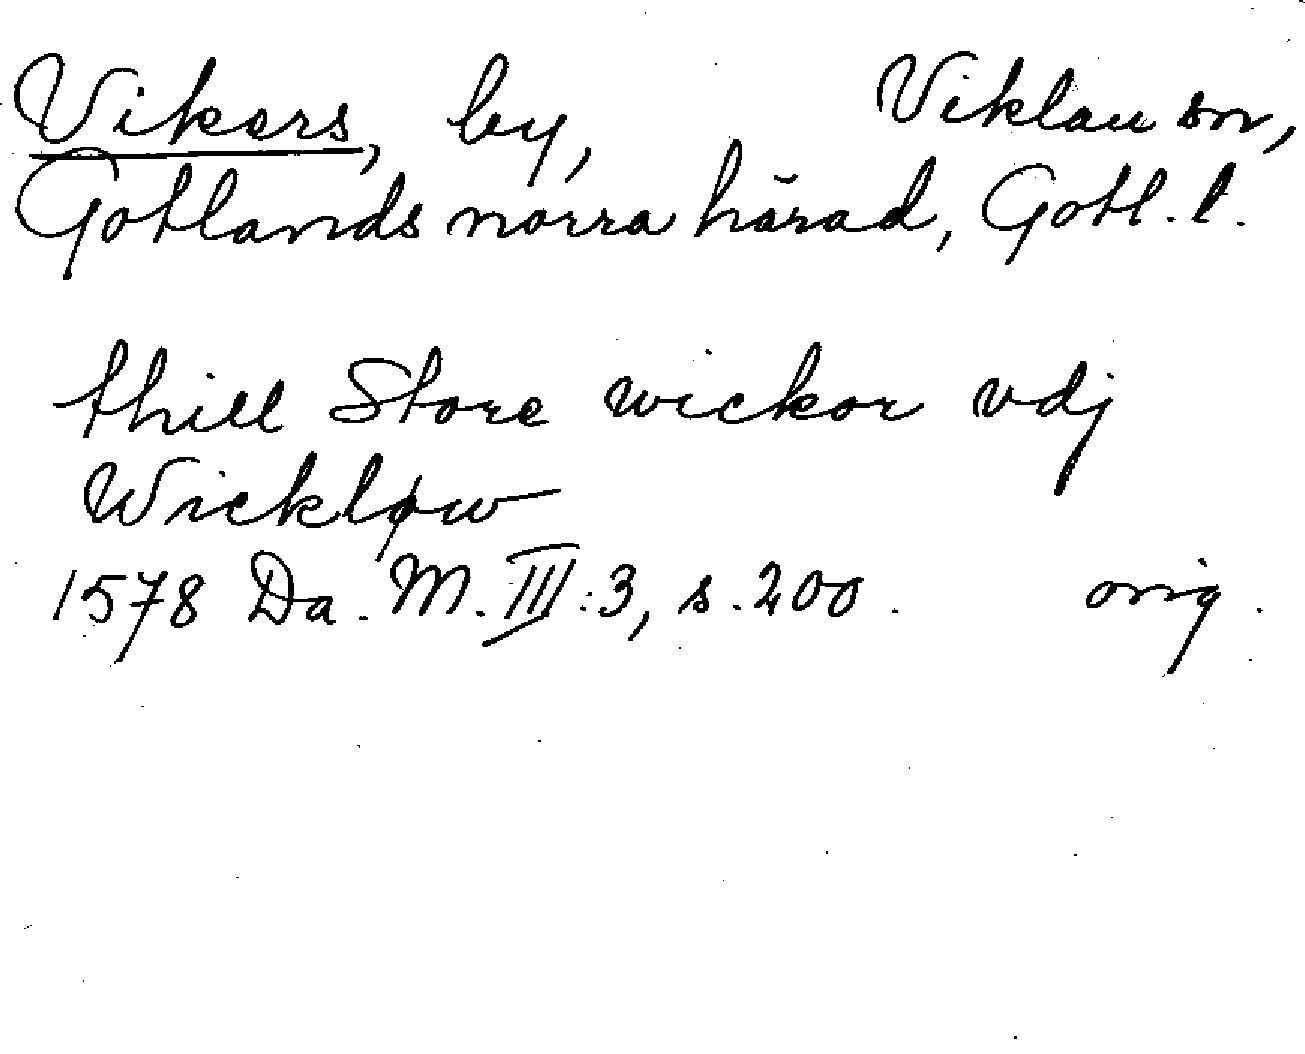 Vikers, by, Viklau sn,
Gotlands norra härad, Gotl. l.
thill Store wickor vdj
Wickløw
1578 Da. M. III:3, s. 200. orig.